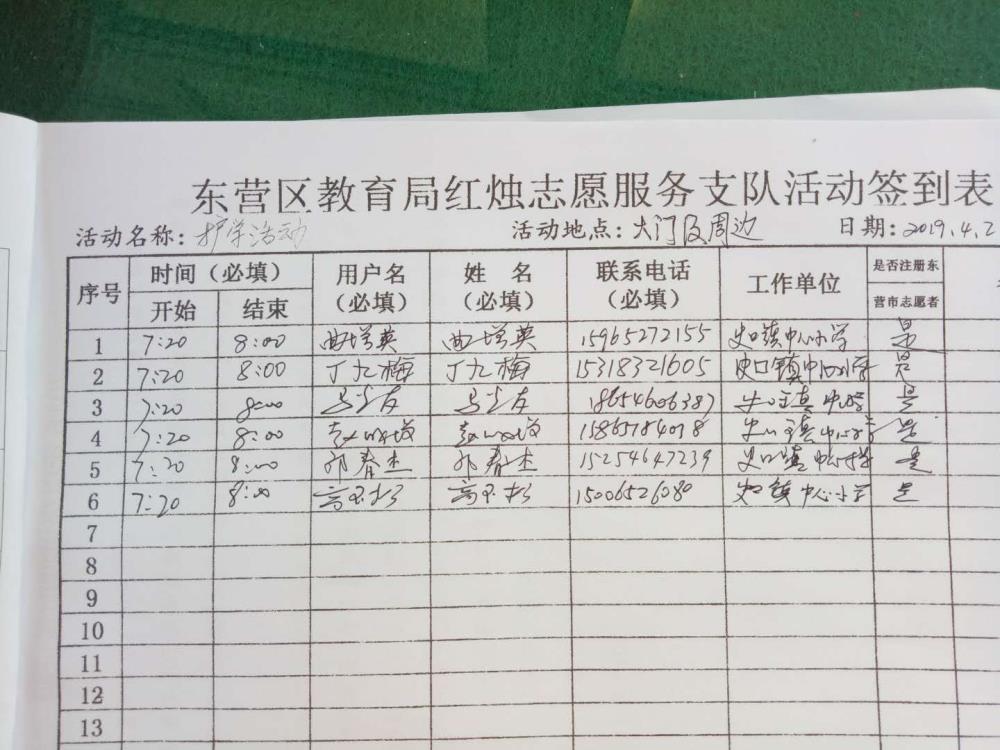 东营区教育局红烛志愿服务支队活动签到表
活动名称：护学活动 活动地点：大门及周边 日期：2019.4.2
序号 时间（必填） 用户名（必填） 姓名（必填） 联系电话（必填） 工作单位 是否注册东营市志愿者
开始 结束
1 7:20 8:00 曲增英 曲增英 15965272155 史口镇中心小学 是
2 7:20 8:00 丁九梅 丁九梅 15318321605 史口镇中心小学 是
3 7:20 8:00 18654606387 史口镇中心小学 是
4 7:20 8:00 史口镇中心小学 是
5 7:20 8:00 邢春杰 邢春杰 15254647239 史口镇中心小学 是
6 7:20 8:00 15006526080 史口镇中心小学 是
7
8
9
10
11
12
13